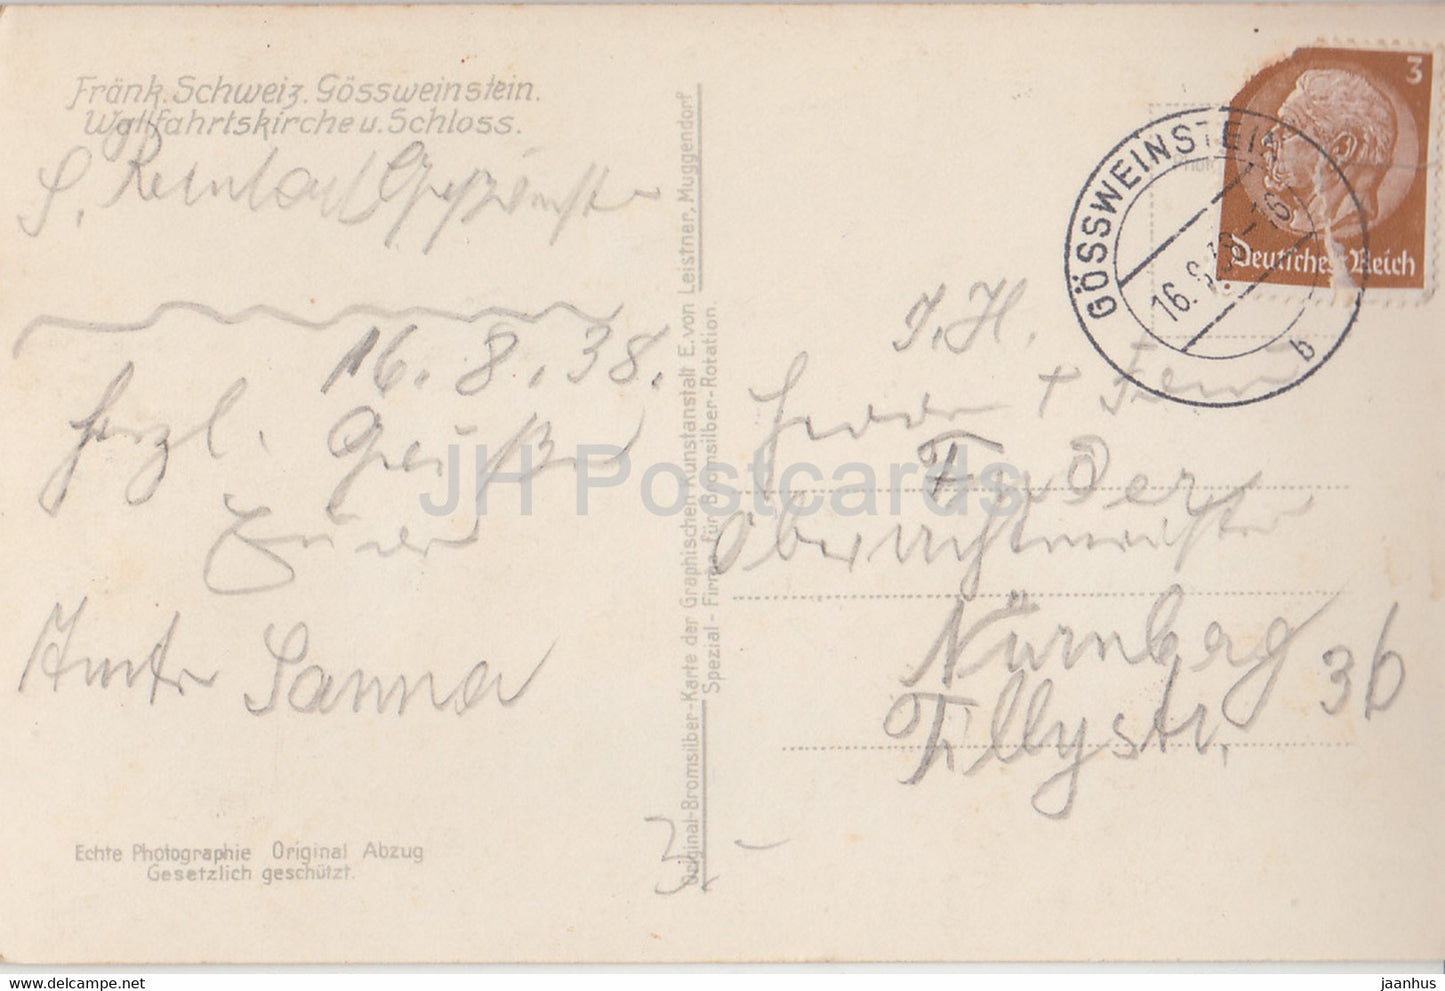 Fränk. Schweiz. Gössweinstein.
Wallfahrtskirche u. Schloss.
16.8.38.
Herzl. Grüße
Sanna
Echte Photographie Original Abzug
Gesetzlich geschützt.
Original-Bromsilber-Karte der Graphischen Kunstanstalt E. von Leistner, Muggendorf
Spezial-Firma für Bromsilber-Rotation.
GÖSSWEINSTEIN
16.8.38
b
3
Deutsches Reich
Herrn + Frau
Oberwachtmeister
Nürnberg
Tillystr. 36
3.-
JH Postcards
https://www.jhpostcards.com
jaanhus